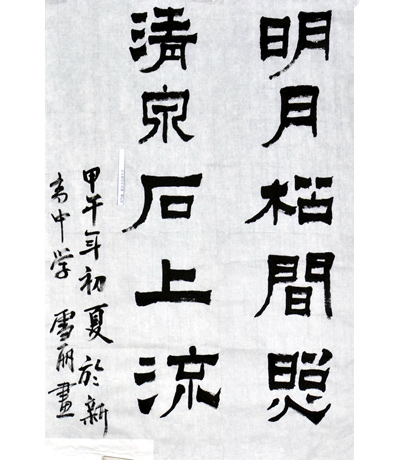 明月松間照
清泉石上流
甲午年初夏於新
高中学 雪丽畫